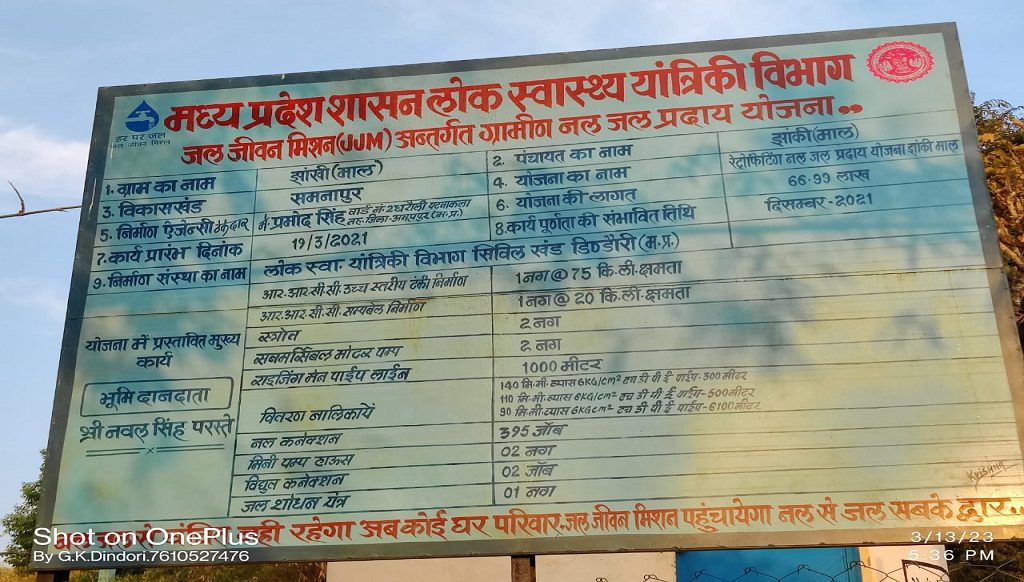 हर घर जल
जल जीवन मिशन
मध्य प्रदेश शासन लोक स्वास्थ्य यांत्रिकी विभाग
जल जीवन मिशन (JJM) अन्तर्गत ग्रामीण नल जल प्रदाय योजना..
1. ग्राम का नाम झांखी (माल) 2. पंचायत का नाम झांकी (माल)
3. विकासखंड समनापुर 4. योजना का नाम रेट्रोफिटिंग नल जल प्रदाय योजना झांकी माल
5. निर्माण ऐजेन्सी ठेकेदार मे. प्रमोद सिंह वार्ड नं-2 6. योजना की लागत 66.99 लाख
7. कार्य प्रारंभ दिनांक 19/3/2021 8. कार्य पूर्णता की संभावित तिथि दिसम्बर-2021
9. निर्माण संस्था का नाम लोक स्वा. यांत्रिकी विभाग सिविल खंड डिण्डौरी (म.प्र.)
योजना में प्रस्तावित मुख्य
कार्य
आर.आर.सी.सी. उच्च स्तरीय टंकी निर्माण 1 नग @ 75 कि.ली. क्षमता
आर.आर.सी.सी. सम्पबेल निर्माण 1 नग @ 20 कि.ली. क्षमता
स्त्रोत 2 नग
सबमर्सिबल मोटर पम्प 2 नग
राइजिंग मेन पाईप लाईन 1000 मीटर
वितरण नालिकायें 140 मि.मी. व्यास 6KG/cm² एच डी पी ई पाईप-300 मीटर
110 मि.मी. व्यास 6KG/cm² एच डी पी ई पाईप-500 मीटर
90 मि.मी. व्यास 6KG/cm² एच डी पी ई पाईप-6100 मीटर
नल कनेक्शन 395 जॉब
मिनी पम्प हाऊस 02 नग
विद्युत कनेक्शन 02 जॉब
जल शोधन यंत्र 01 नग
भूमि दानदाता
श्री नवल सिंह परस्ते
Krishna
नही रहेगा अब कोई घर परिवार, जल जीवन मिशन पहुंचायेगा नल से जल सबके द्वार...
Shot on OnePlus
By G.K.Dindori.7610527476
3/13/23
5:36 PM